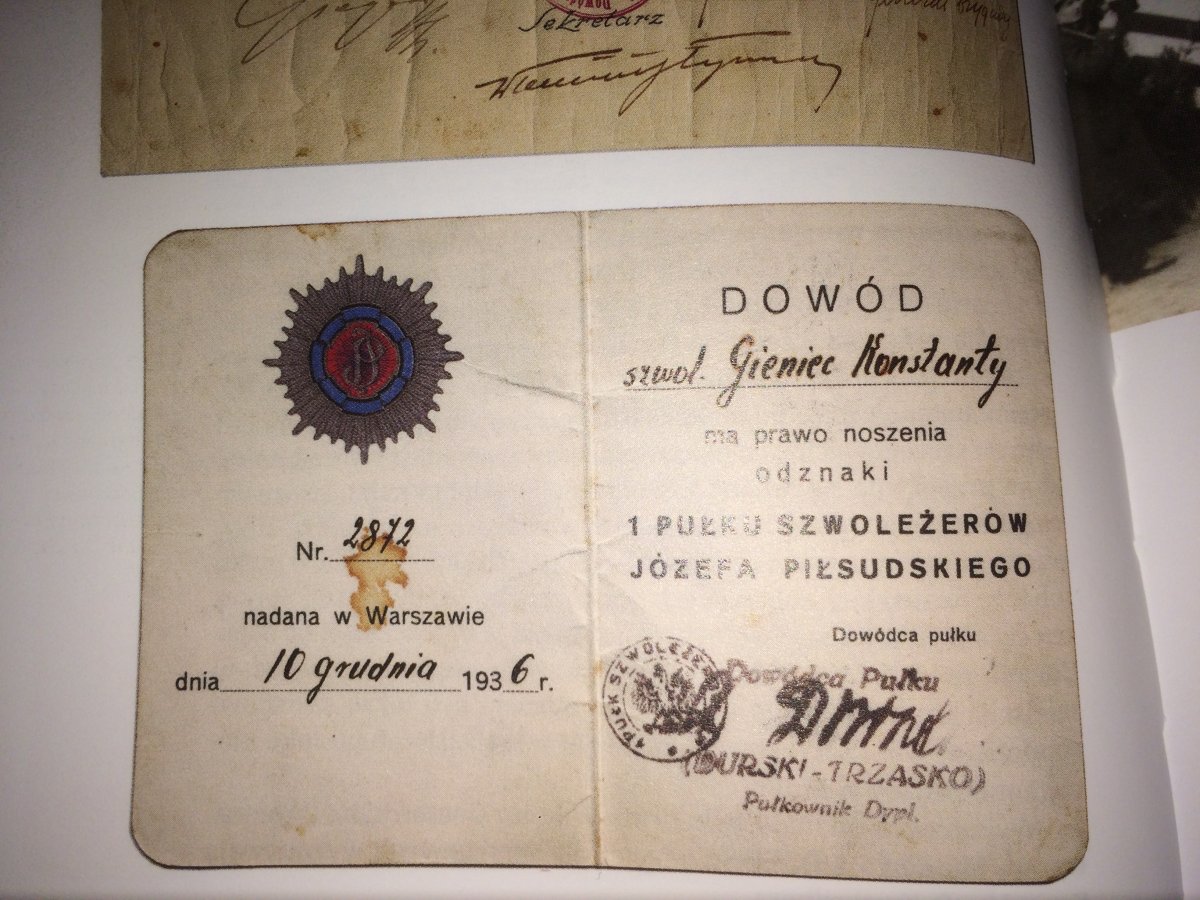 Sekretarz
DOWÓD
szwol. Gieniec Konstanty
ma prawo noszenia
odznaki
1 PUŁKU SZWOLEŻERÓW
JÓZEFA PIŁSUDSKIEGO
Nr. 2872
nadana w Warszawie
dnia 10 grudnia 1936 r.
Dowódca pułku
Dowódca Pułku
(DURSKI-TRZASKO)
Pułkownik Dypl.
1 PUŁK SZWOLEŻERÓW